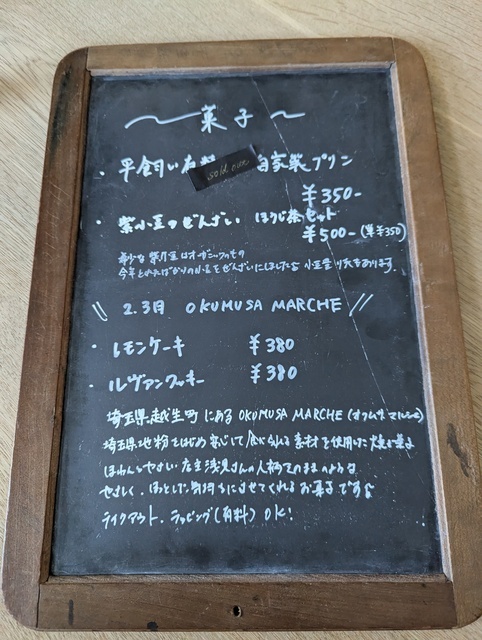 〜菓子〜
・平飼い有精 sold out 自家製プリン
¥350-
・紫小豆のぜんざい ほうじ茶セット
¥500-(単¥350)
希少な紫小豆はオーガニックのもの
今年とれたばかりの小豆をぜんざいにしました
\\ 2.3日 OKUMUSA MARCHE //
・レモンケーキ ¥380
・ルヴァンクッキー ¥380
埼玉県越生町にあるOKUMUSA MARCHE(オクムサマルシェ)
埼玉県地粉をはじめ安心して食べられる素材を使用した焼き菓子
ほわんとやさしい店主浅見さんの人柄そのままのような
やさしく、ほっとした気持ちにさせてくれるお菓子です
テイクアウト、ラッピング(有料)OK!